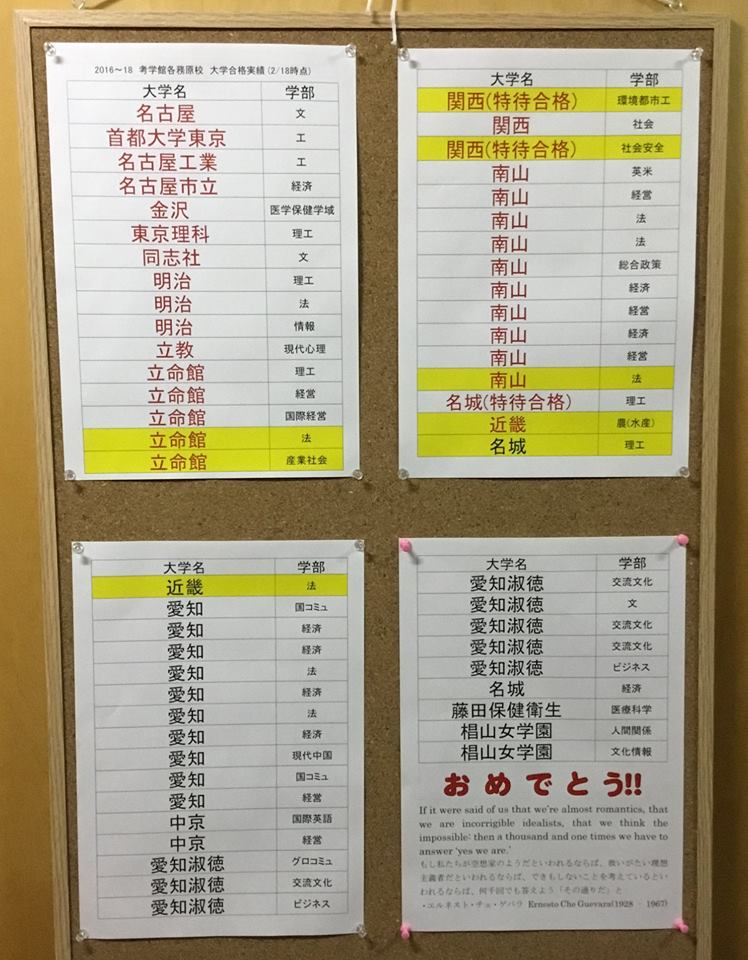 2016～18 考学館各務原校 大学合格実績(2/18時点)
大学名 学部
名古屋 文
首都大学東京 工
名古屋工業 工
名古屋市立 経済
金沢 医学保健学域
東京理科 理工
同志社 文
明治 理工
明治 法
明治 情報
立教 現代心理
立命館 理工
立命館 経営
立命館 国際経営
立命館 法
立命館 産業社会
大学名 学部
関西(特待合格) 環境都市工
関西 社会
関西(特待合格) 社会安全
南山 英米
南山 経営
南山 法
南山 法
南山 総合政策
南山 経済
南山 経営
南山 経済
南山 経営
南山 法
名城(特待合格) 理工
近畿 農(水産)
名城 理工
大学名 学部
近畿 法
愛知 国コミュ
愛知 経済
愛知 経済
愛知 法
愛知 経済
愛知 法
愛知 経済
愛知 現代中国
愛知 国コミュ
愛知 経営
中京 国際英語
中京 経営
愛知淑徳 グロコミュ
愛知淑徳 交流文化
愛知淑徳 ビジネス
大学名 学部
愛知淑徳 交流文化
愛知淑徳 文
愛知淑徳 交流文化
愛知淑徳 交流文化
愛知淑徳 ビジネス
名城 経済
藤田保健衛生 医療科学
椙山女学園 人間関係
椙山女学園 文化情報
おめでとう!!
If it were said of us that we're almost romantics, that
we are incorrigible idealists, that we think the
impossible: then a thousand and one times we have to
answer 'yes we are.'
もし私たちが空想家のようだといわれるならば、救いがたい理想
主義者だといわれるならば、できもしないことを考えているとい
われるならば、何千回でも答えよう「その通りだ」と
・エルネスト・チェ・ゲバラ Ernesto Che Guevara(1928 - 1967)